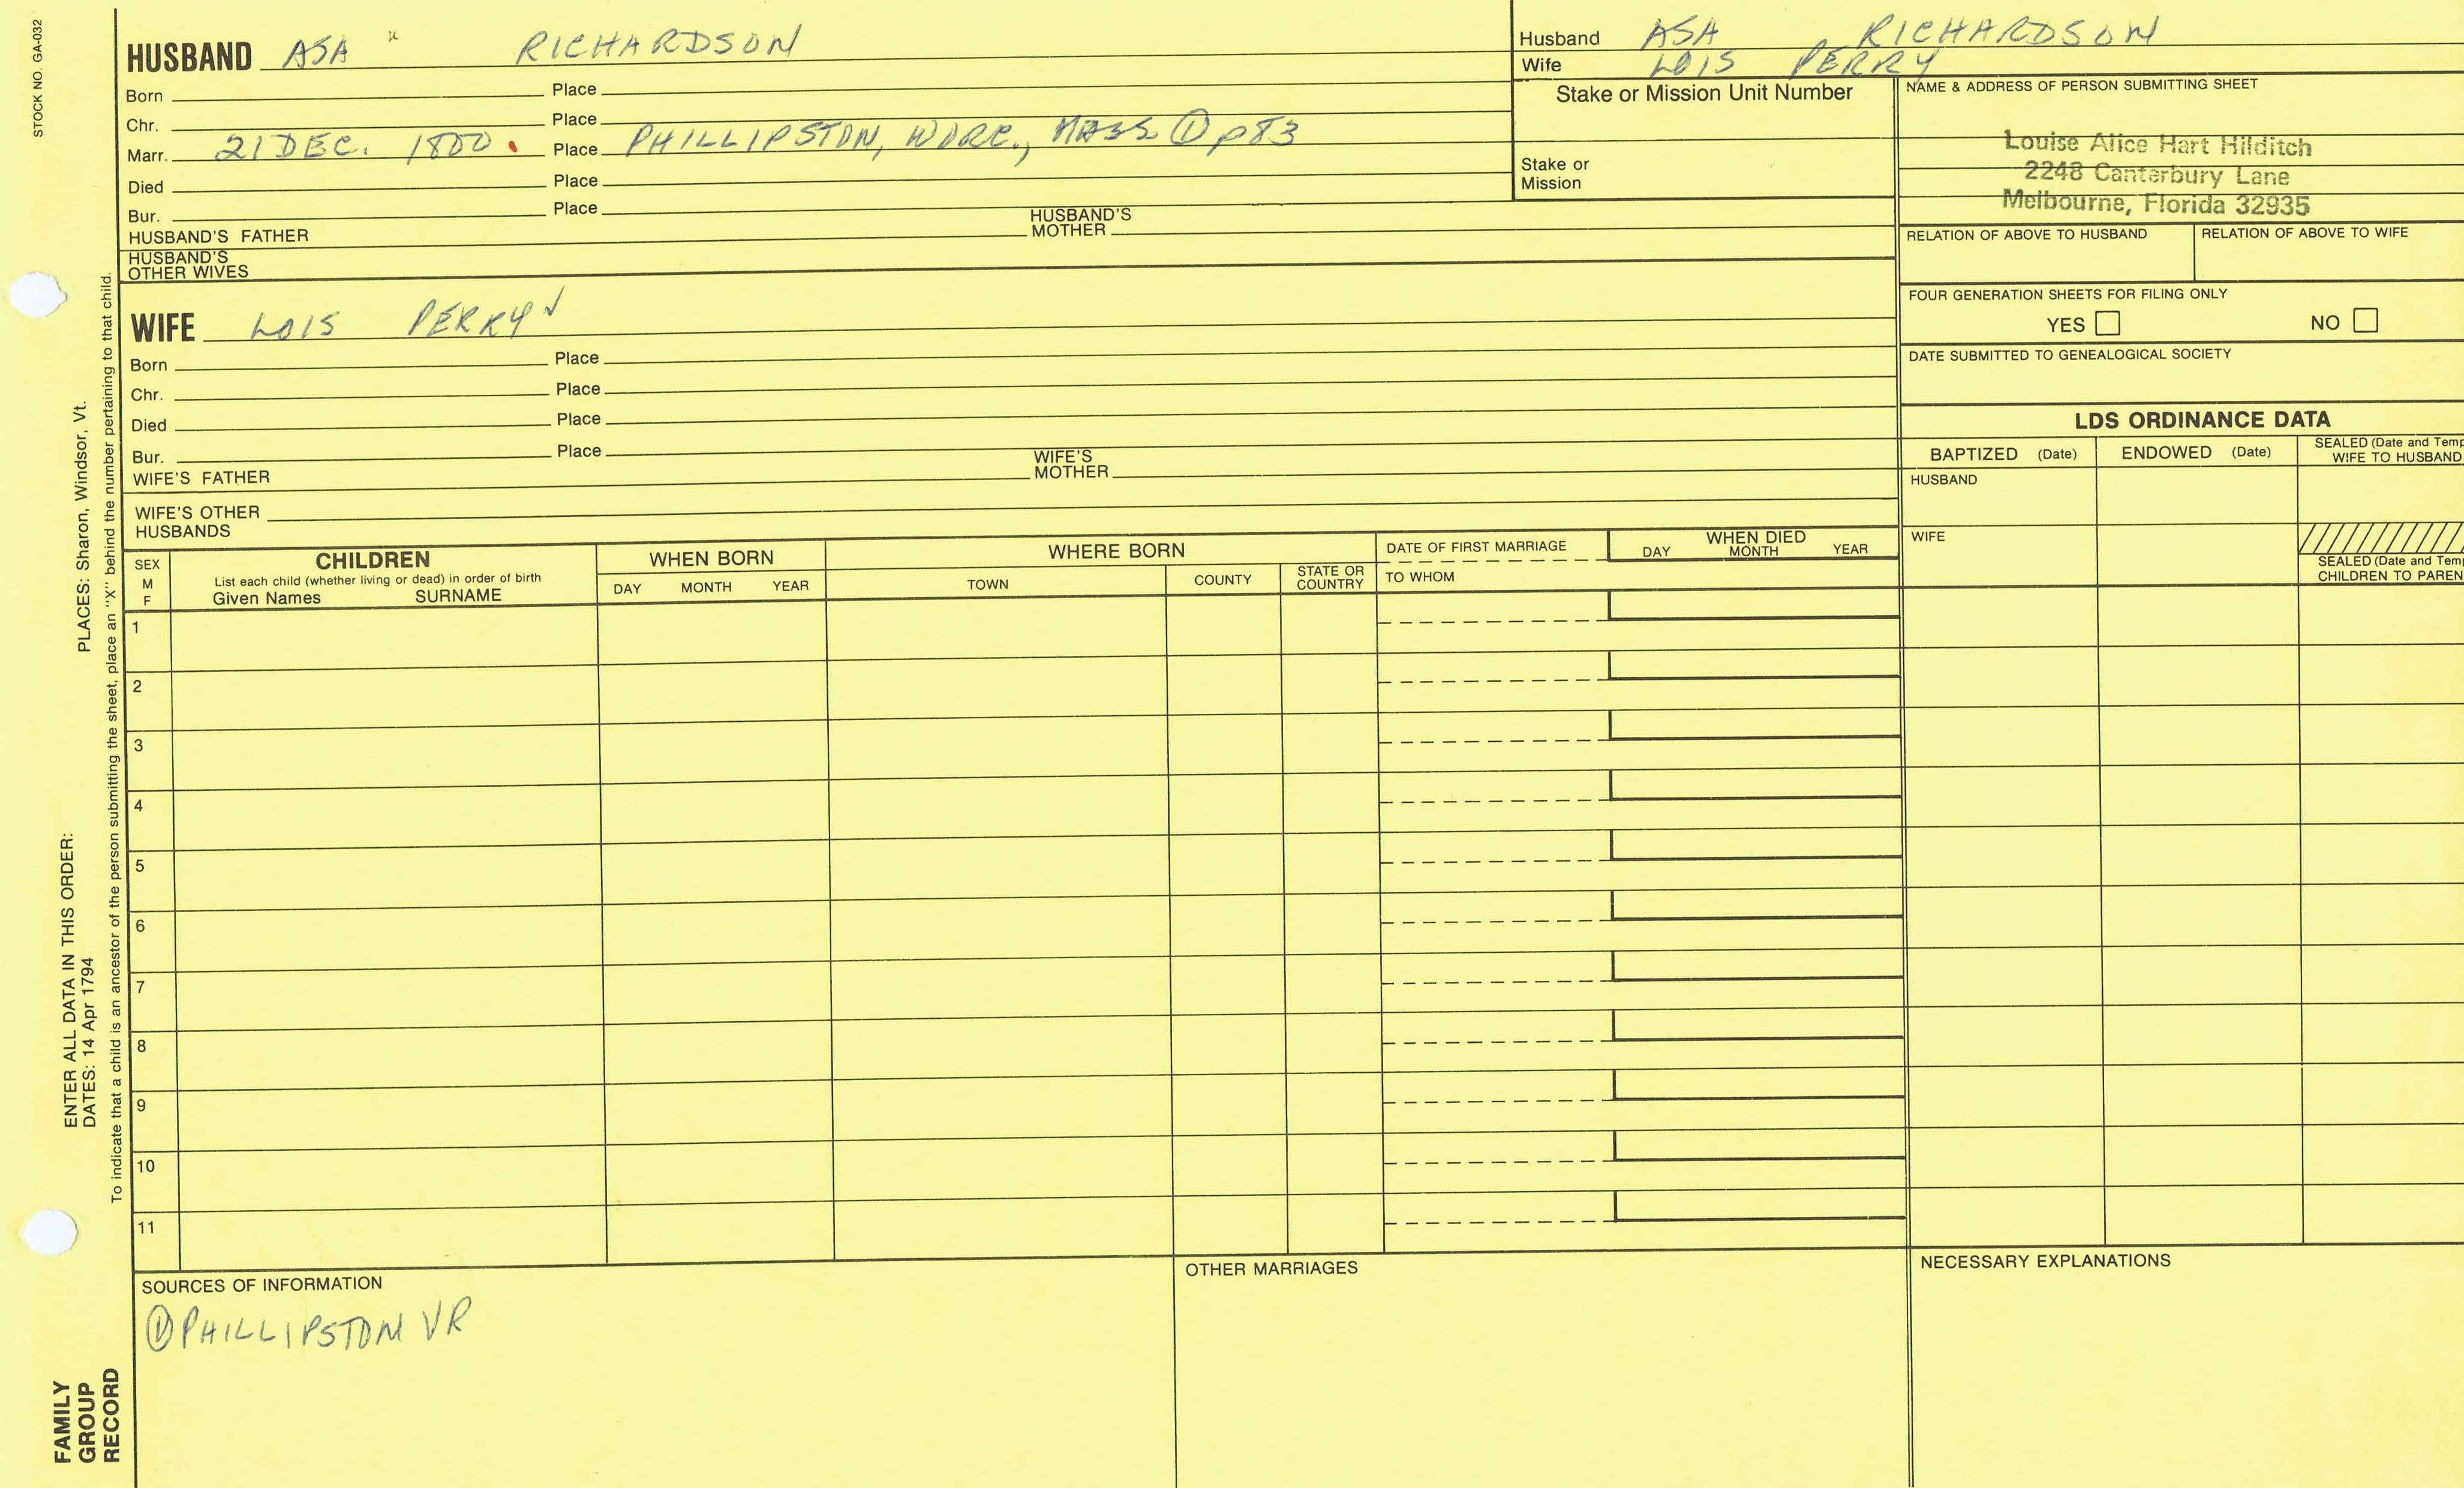 STOCK NO. GA-032
HUSBAND ASA RICHARDSON
Born Place
Chr. Place
Marr. 21 DEC. 1800. Place PHILLIPSTON, WORC., MASS ① p83
Died Place
Bur. Place
HUSBAND'S FATHER HUSBAND'S MOTHER
HUSBAND'S OTHER WIVES
Husband ASA RICHARDSON
Wife LOIS PERRY
Stake or Mission Unit Number
Stake or Mission
NAME & ADDRESS OF PERSON SUBMITTING SHEET
Louise Alice Hart Hilditch
2248 Canterbury Lane
Melbourne, Florida 32935
RELATION OF ABOVE TO HUSBAND RELATION OF ABOVE TO WIFE
FOUR GENERATION SHEETS FOR FILING ONLY
YES NO
DATE SUBMITTED TO GENEALOGICAL SOCIETY
WIFE LOIS PERRY ✓
Born Place
Chr. Place
Died Place
Bur. Place
WIFE'S FATHER WIFE'S MOTHER
WIFE'S OTHER HUSBANDS
LDS ORDINANCE DATA
BAPTIZED (Date) ENDOWED (Date) SEALED (Date and Temp
WIFE TO HUSBAND
HUSBAND
WIFE
SEALED (Date and Tem
CHILDREN TO PAREN
SEX M F
CHILDREN
List each child (whether living or dead) in order of birth
Given Names SURNAME
WHEN BORN
DAY MONTH YEAR
WHERE BORN
TOWN COUNTY STATE OR COUNTRY
DATE OF FIRST MARRIAGE
TO WHOM
WHEN DIED
DAY MONTH YEAR
1
2
3
4
5
6
7
8
9
10
11
SOURCES OF INFORMATION
① PHILLIPSTON VR
OTHER MARRIAGES
NECESSARY EXPLANATIONS
ENTER ALL DATA IN THIS ORDER:
DATES: 14 Apr 1794 PLACES: Sharon, Windsor, Vt.
To indicate that a child is an ancestor of the person submitting the sheet, place an "X" behind the number pertaining to that child.
FAMILY
GROUP
RECORD